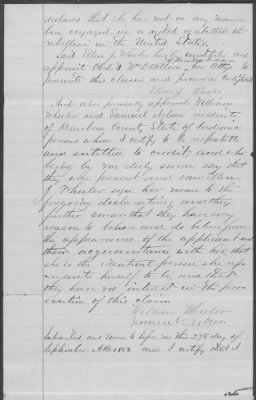 declares that she has not in any manner
been engaged in or aided or abetted the
rebellion in the United States,
Said Ellen J Wheeler hereby constitutes and
appoints Wm his Atty to
prosecute this claim and procure Certificate
Ellen J Wheeler
And also personally appeared William
Wheeler and Samuel Nelson residents
of County State of Indiana
persons whom I certify to be respectable
and entitled to credit, and who
being by me duly sworn say that
they were present and saw Ellen
J Wheeler sign her name to the
foregoing declaration, and they
further swear that they have every
reason to believe and do believe from
the appearance of the applicant and
their acquaintance with her, that
she is the identical person she rep
resents himself to be and that
they have no interest in the pros
ecution of this claim
William Wheeler
Samuel Nelson
Subscribed and sworn to before me this 27th day of
September AD 1883 and I certify that I